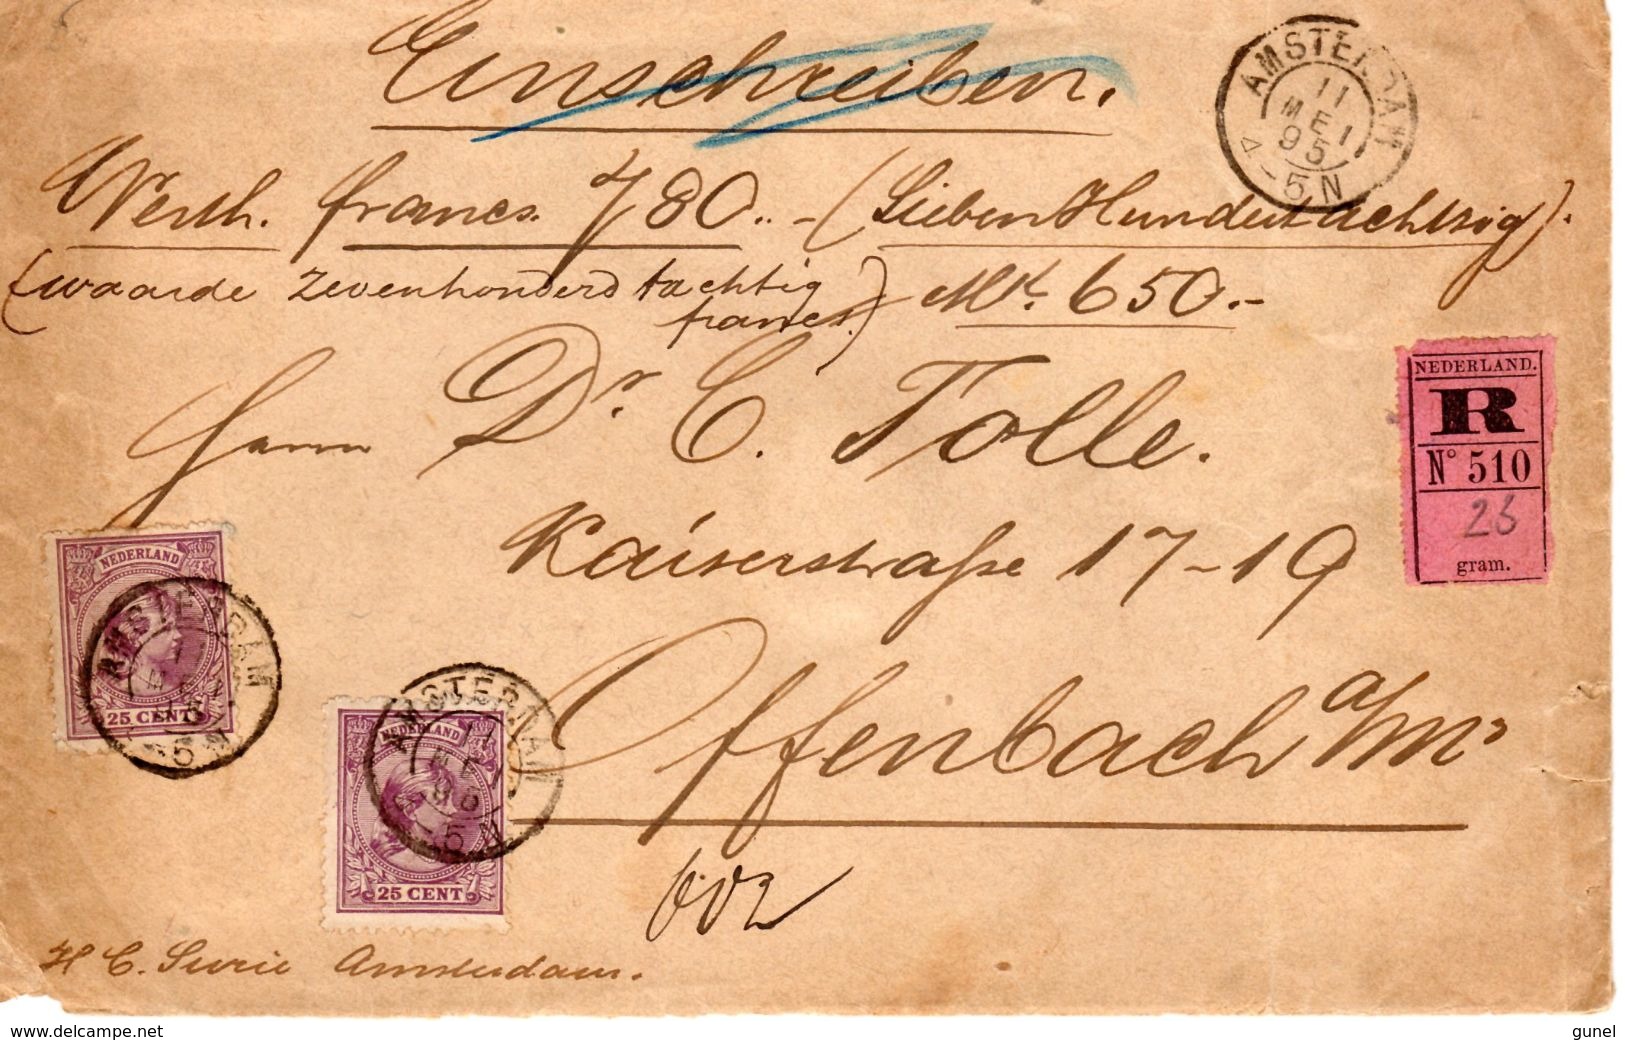 Einschreiben.
AMSTERDAM
11
MEI
95
4-5N
Werth. francs. 780.. - (Sieben Hundertachtzig).
(waarde zevenhonderd tachtig francs.) Mk. 650.-
Herrn Dr. C. Tolle.
Kaiserstraße 17-19
Offenbach a/M.
NEDERLAND.
R
N° 510
26
gram.
NEDERLAND
25 CENT
AMSTERDAM
NEDERLAND
25 CENT
AMSTERDAM
11
MEI
95
4-5N
H C. Amsterdam.
www.delcampe.net
gunel